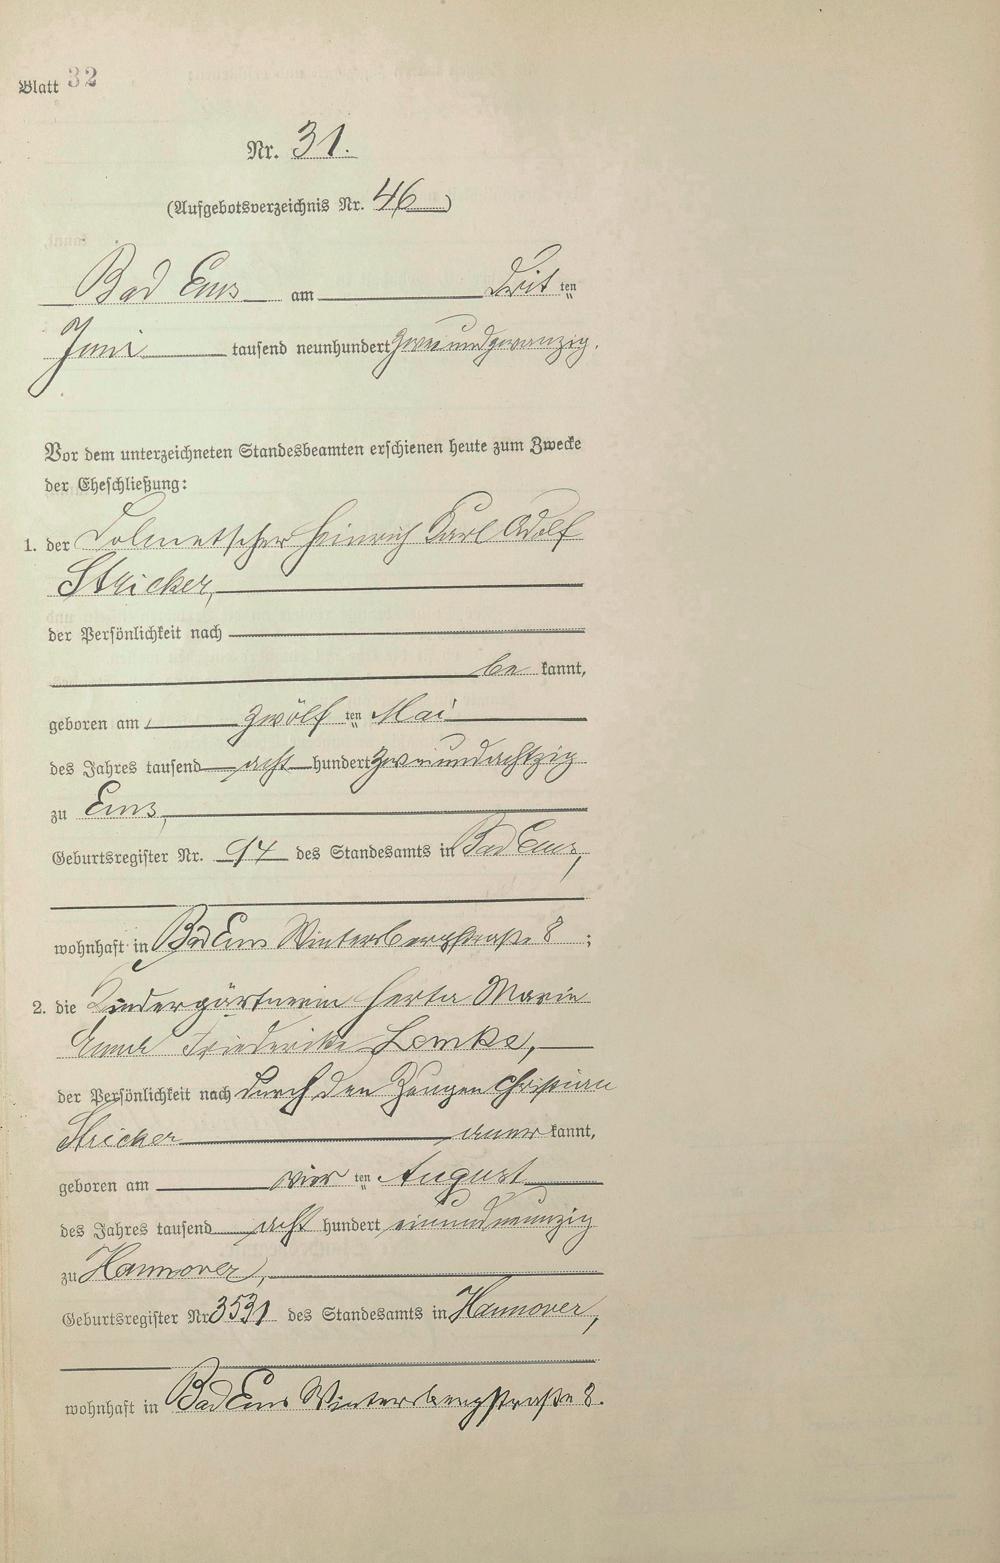 Blatt 32
Nr. 31.
(Aufgebotsverzeichnis Nr. 46)
Bad Ems am Drit ten
Juni tausend neunhundert zweiundzwanzig.
Vor dem unterzeichneten Standesbeamten erschienen heute zum Zwecke
der Eheschließung:
1. der Dolmetscher Heinrich Karl Adolf
Stricker,
der Persönlichkeit nach
be kannt,
geboren am zwölf ten Mai
des Jahres tausend acht hundert zweiundachtzig
zu Ems,
Geburtsregister Nr. 94 des Standesamts in Bad Ems,
wohnhaft in Bad Ems Wintersbergstraße 8 ;
2. die Kindergärtnerin Herta Marie
Emma Friederike Lemke,
der Persönlichkeit nach durch den Zeugen Christian
Stricker aner kannt,
geboren am vier ten August
des Jahres tausend acht hundert einundneunzig
zu Hannover,
Geburtsregister Nr. 3531 des Standesamts in Hannover,
wohnhaft in Bad Ems Wintersbergstraße 8.